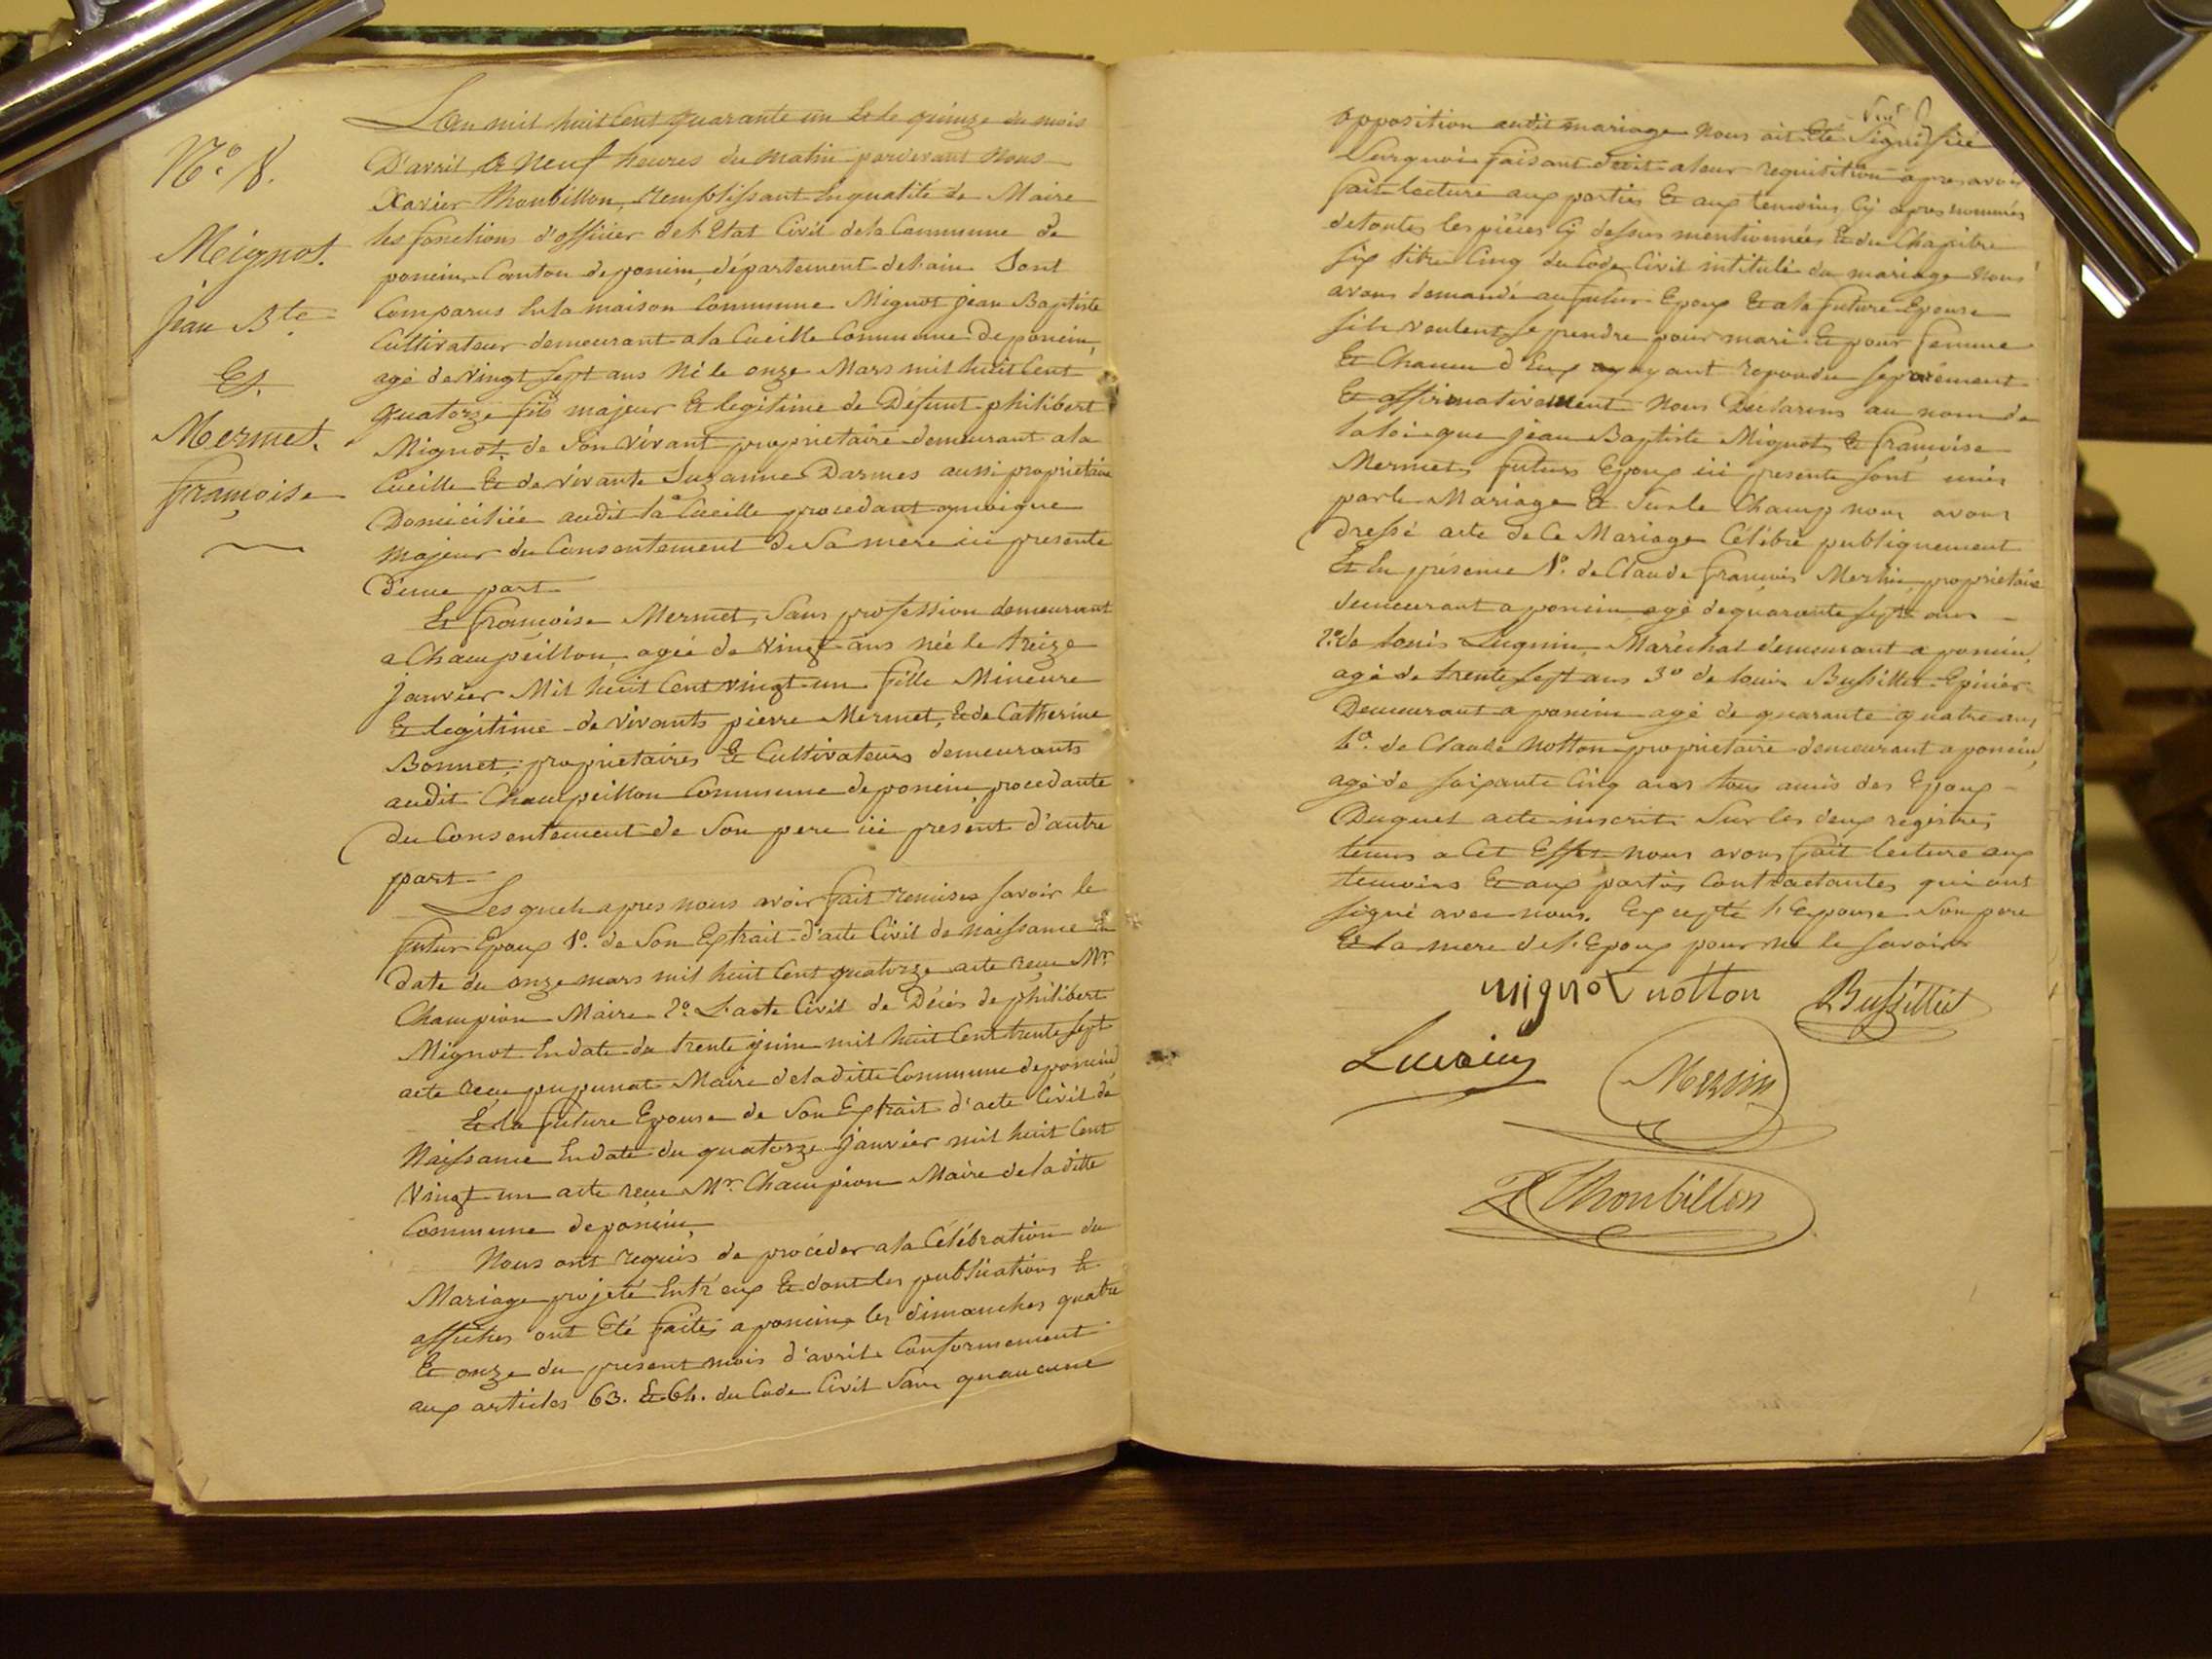 N.° 8.
Meignot.
jean Bte
Et
Mermet.
françoise
L'an mil huit Cent quarante un Et le quinze du mois
D'avril a neuf heures du matin pardevant Nous
Xavier Thoubillon, remplissant En qualité de Maire
les fonctions d'officier de l'Etat Civil de la Commune de
poncin, Canton de poncin, département de l'ain Sont
Comparus En la maison Commune Mignot jean Baptiste
Cultivateur demeurant a la Cueille Commune De poncin,
agé de vingt sept ans Né le onze Mars mil huit Cent
quatorze fils majeur Et legitime de Défunt philibert
Mignot, de Son vivant proprietaire demeurant a la
Cueille Et de vivante Suzanne Darmes aussi proprietaire
Domiciliée audit la Cueille procédant quoique
majeur du Consentement De Sa mere ici presente
D'une part
Et françoise Mermet, Sans profession demeurant
a Champeillon, agée de vingt ans née le treize
janvier Mil huit Cent vingt un fille Mineure
Et legitime de vivants pierre Mermet, Et de Catherine
Bonnet, proprietaires Et Cultivateurs demeurants
audit Champeillon Commune de poncin, procedante
du Consentement de Son pere ici present d'autre
part
Lesquels apres nous avoir fait remises Savoir le
futur Epoux 1°. de Son Extrait d'acte Civil de Naissance En
date du onze mars mil huit Cent quatorze acte reçu Mr
Champion Maire 2° L'acte Civil de Décés de philibert
Mignot En date du trente juin mil huit Cent trente sept
acte reçu pupunat Maire de la ditte Commune de poncin
Et la future Epouse de Son Extrait d'acte Civil de
Naissance En date du quatorze janvier mil huit Cent
Vingt un acte reçu Mr Champion Maire de la ditte
Commune de poncin,
Nous ont requis de procéder a la Célébration du
Mariage projeté Entr'eux Et dont les publications Et
affiches ont Eté faites a poncin les dimanches quatre
Et onze du present mois d'avril Conformement
aux articles 63. Et 64. du Code Civil Sans qu'aucune
opposition audit mariage Nous ait Eté Signifiée
Surquoi faisant droit a leur requisition apres avoir
fait lecture aux parties Et aux temoins Cy apres nommés
de toutes les pièces Cy dessus mentionnées Et du Chapitre
six titre Cinq du Code Civil intitulé du mariage Nous
avons demandé au futur Epoux Et a la future Epouse
s'ils veulent se prendre pour mari Et pour femme
Et Chacun d'Eux ayant repondu separément
Et affirmativement Nous Déclarons au nom de
la loi que jean Baptiste Mignot, Et françoise
Mermet, futurs Epoux ici presents sont unis
par le Mariage Et Sur le Champ nous avons
dressé acte de Ce Mariage Célébré publiquement
Et En présence 1°. de Claude françois Merlin, proprietaire
demeurant a poncin agé de quarante sept ans
2° de louis Lugnin, Maréchal demeurant a poncin,
agé de trente sept ans 3° de louis Bussillet Epicier
Demeurant a poncin agé de quarante quatre ans
4°. de Claude Notton proprietaire demeurant a poncin,
agé de soixante Cinq ans tous amis des Epoux
Duquel acte inscrit Sur les deux registres
tenus a Cet Effet nous avons fait lecture aux
temoins Et aux parties Contractantes qui ont
signé avec nous. Excepté l'Epouse Son pere
Et la mere de l'Epoux pour ne le Savoir
mignot notton Bussillet
Merlin
X Thoubillon